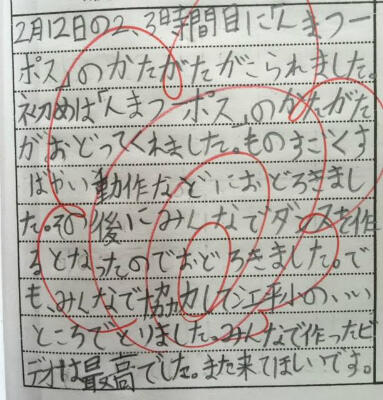 2月12日の2、3時間目に「んまつー
ポス」のかたがたがこられました。
初めは「んまつーポス」のかたがた
がおどってくれました。ものすごくす
ばやい動作などにおどろきまし
た。その後にみんなでダンスを作
るとなったのでおどろきました。で
も、みんなで協力して江平小のいい
ところでとりました。みんなで作ったビ
デオは最高でした。また来てほしいです。